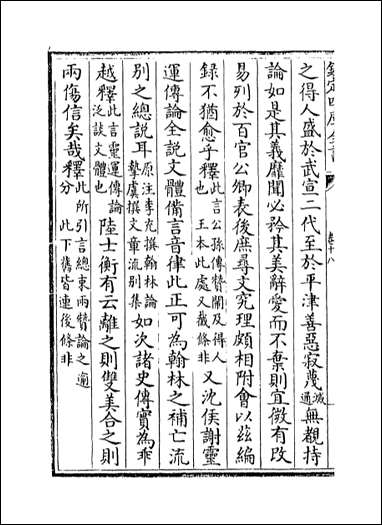 欽定四庫全書
卷十八
之得人盛於武宣二代至於平津善惡寂蔑滅通無覩持
論如是其義靡聞必矜其美辭愛而不棄則宜微有改
易列於百官公卿表後庶尋文究理頗相附會以兹編
錄不猶愈乎釋此言公孫傳贊闌及得人也 王本此處又截條非又沈侯謝靈
運傳論全説文體備言音律此正可為翰林之補亡流
别之總説耳原注李充撰翰林論摯虞撰文章流别集如次諸史傳實為乖
越釋此言靈運傳論泛談文體也陸士衡有云離之則雙美合之則
兩傷信矣哉釋此所引言總束兩贊論之分 此下舊皆連後條非